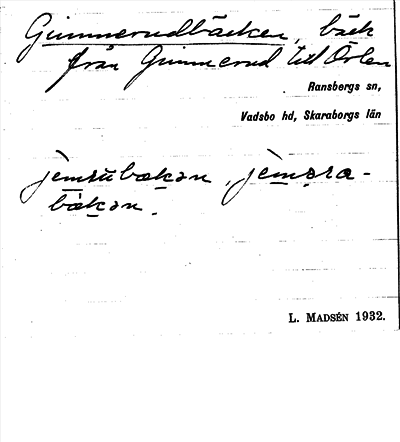 Gimmerudbäcken, bäck
från Gimmerud till Örlen
Ransbergs sn,
Vadsbo hd, Skaraborgs län
jemrubækən, jeməra-
bækən.
L. MADSÉN 1932.